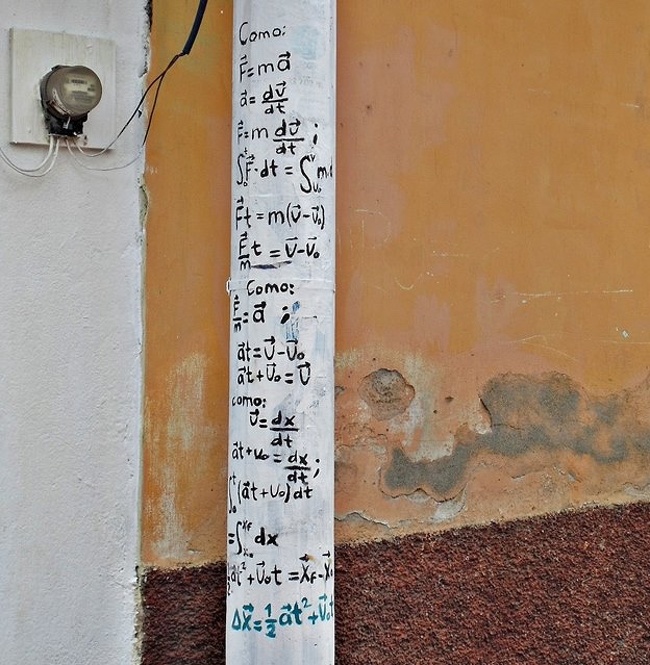 Como:
F⃗=ma⃗
a⃗=dv⃗/dt
F⃗=m dv⃗/dt ;
∫₀ᵗF⃗·dt = ∫ᵥ₀ᵛ m·
F⃗t=m(v⃗-v⃗₀)
F⃗/m t = v⃗-v⃗₀
Como:
F⃗/m=a⃗ ;
a⃗t=v⃗-v⃗₀
a⃗t+v⃗₀=v⃗
como:
v⃗=dx/dt
a⃗t+v₀=dx/dt;
∫₀ᵗ(a⃗t+v₀)dt
=∫ₓ₀ˣF dx
½a⃗t²+v⃗₀t =x⃗F-x⃗
Δx⃗=½a⃗t²+v⃗₀t